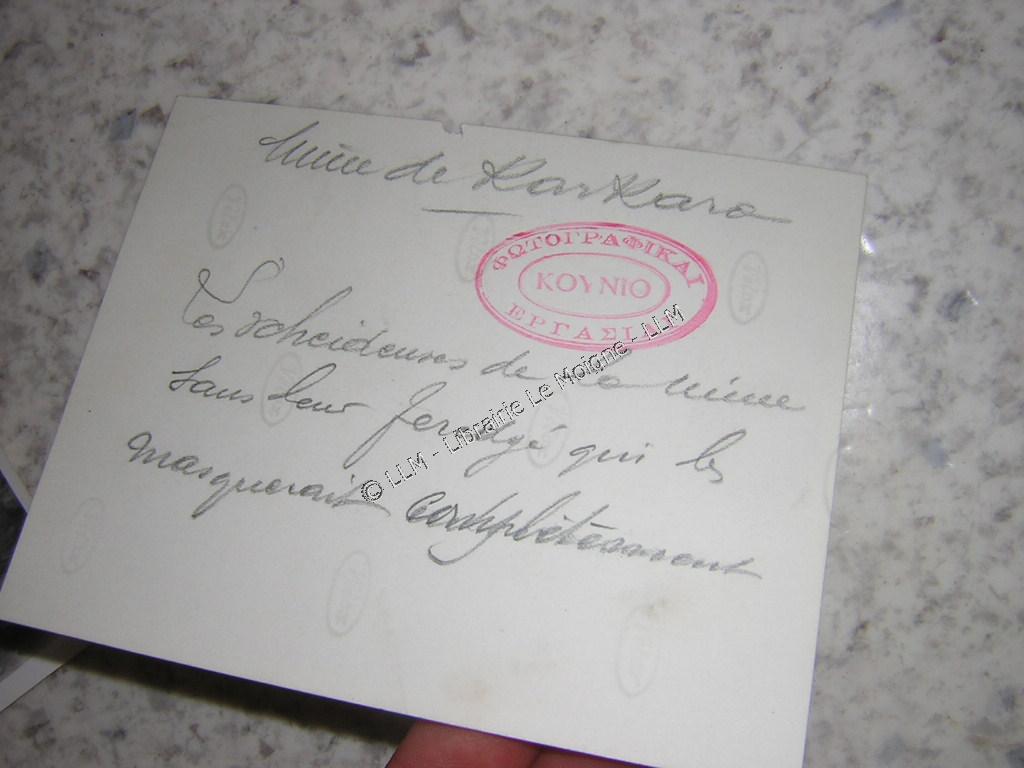 Mine de Karkara
ΦΩΤΟΓΡΑΦΙΚΑΙ
ΚΟΥΝΙΟ
ΕΡΓΑΣΙΑΙ
Les scheideuses de la mine
sans leur feredgé qui les
masquerait complètement
© LLM - Librairie Le Moigne - LLM